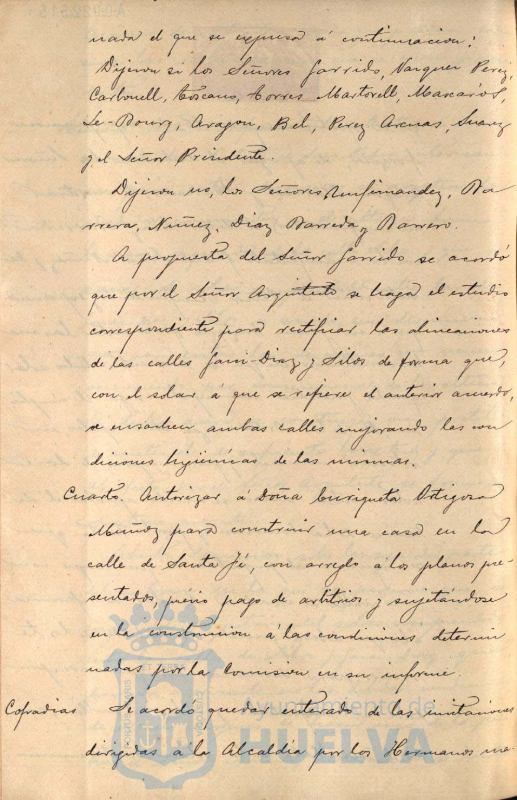 nada el que se expresa á continuacion:
Dijeron si los Señores Garrido, Vazquez Perez,
Carbonell, Toscano, Torres Martorell, Mascarós,
Le-Bourg, Aragon, Bel, Perez Arenas, Suarez
y el Señor Presidente.
Dijeron no, los Señores Ba
rrera, Nuñez, Diaz Barreda y Barrero.
A propuesta del Señor Garrido se acordó
que por el Señor Arquitecto se haga el estudio
correspondiente para rectificar las alineaciones
de las calles Gari-Diaz y Silos de forma que,
con el solar á que se refiere el anterior acuerdo,
se ensachen ambas calles mejorando las con
diciones higiénicas de las mismas.
Cuarto. Autorizar á Doña Enriqueta Ortigosa
Muñoz para construir una casa en la
calle de Santa Fé, con arreglo á los planos pre-
sentados, prévio pago de arbitrios y sujetándose
en la construccion á las condiciones determi
nadas por la Comision en su informe.
Cofradias Se acordó quedar enterado de las invitaciones
dirigidas á la Alcaldia por los Hermanos ma-
Ayuntamiento de
HUELVA